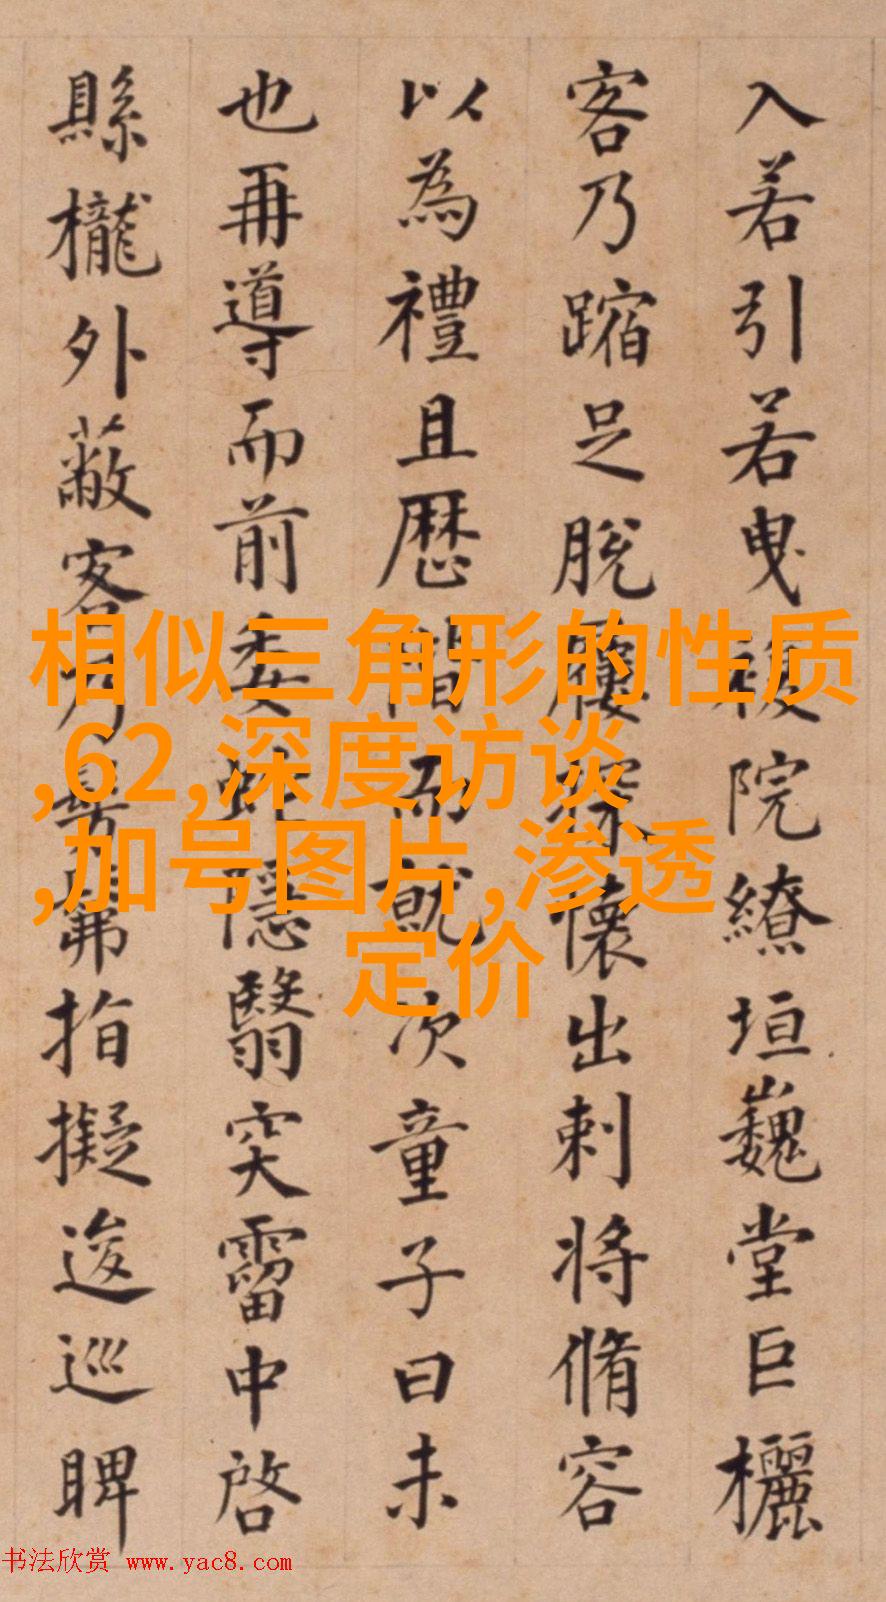 入若引若曳複院繚垣巍堂巨欐
客乃蹜足脫屨探懷出刺將脩容
以為禮且歷階而就次童子曰未
也再導而前委蛇隱翳突霤中啓
縣櫳外蔽客乃髣髴指擬逡巡睥
相似三角形的性质
,62,深度访谈
,加号图片,渗透
定价
书法欣赏 www.yac8.com